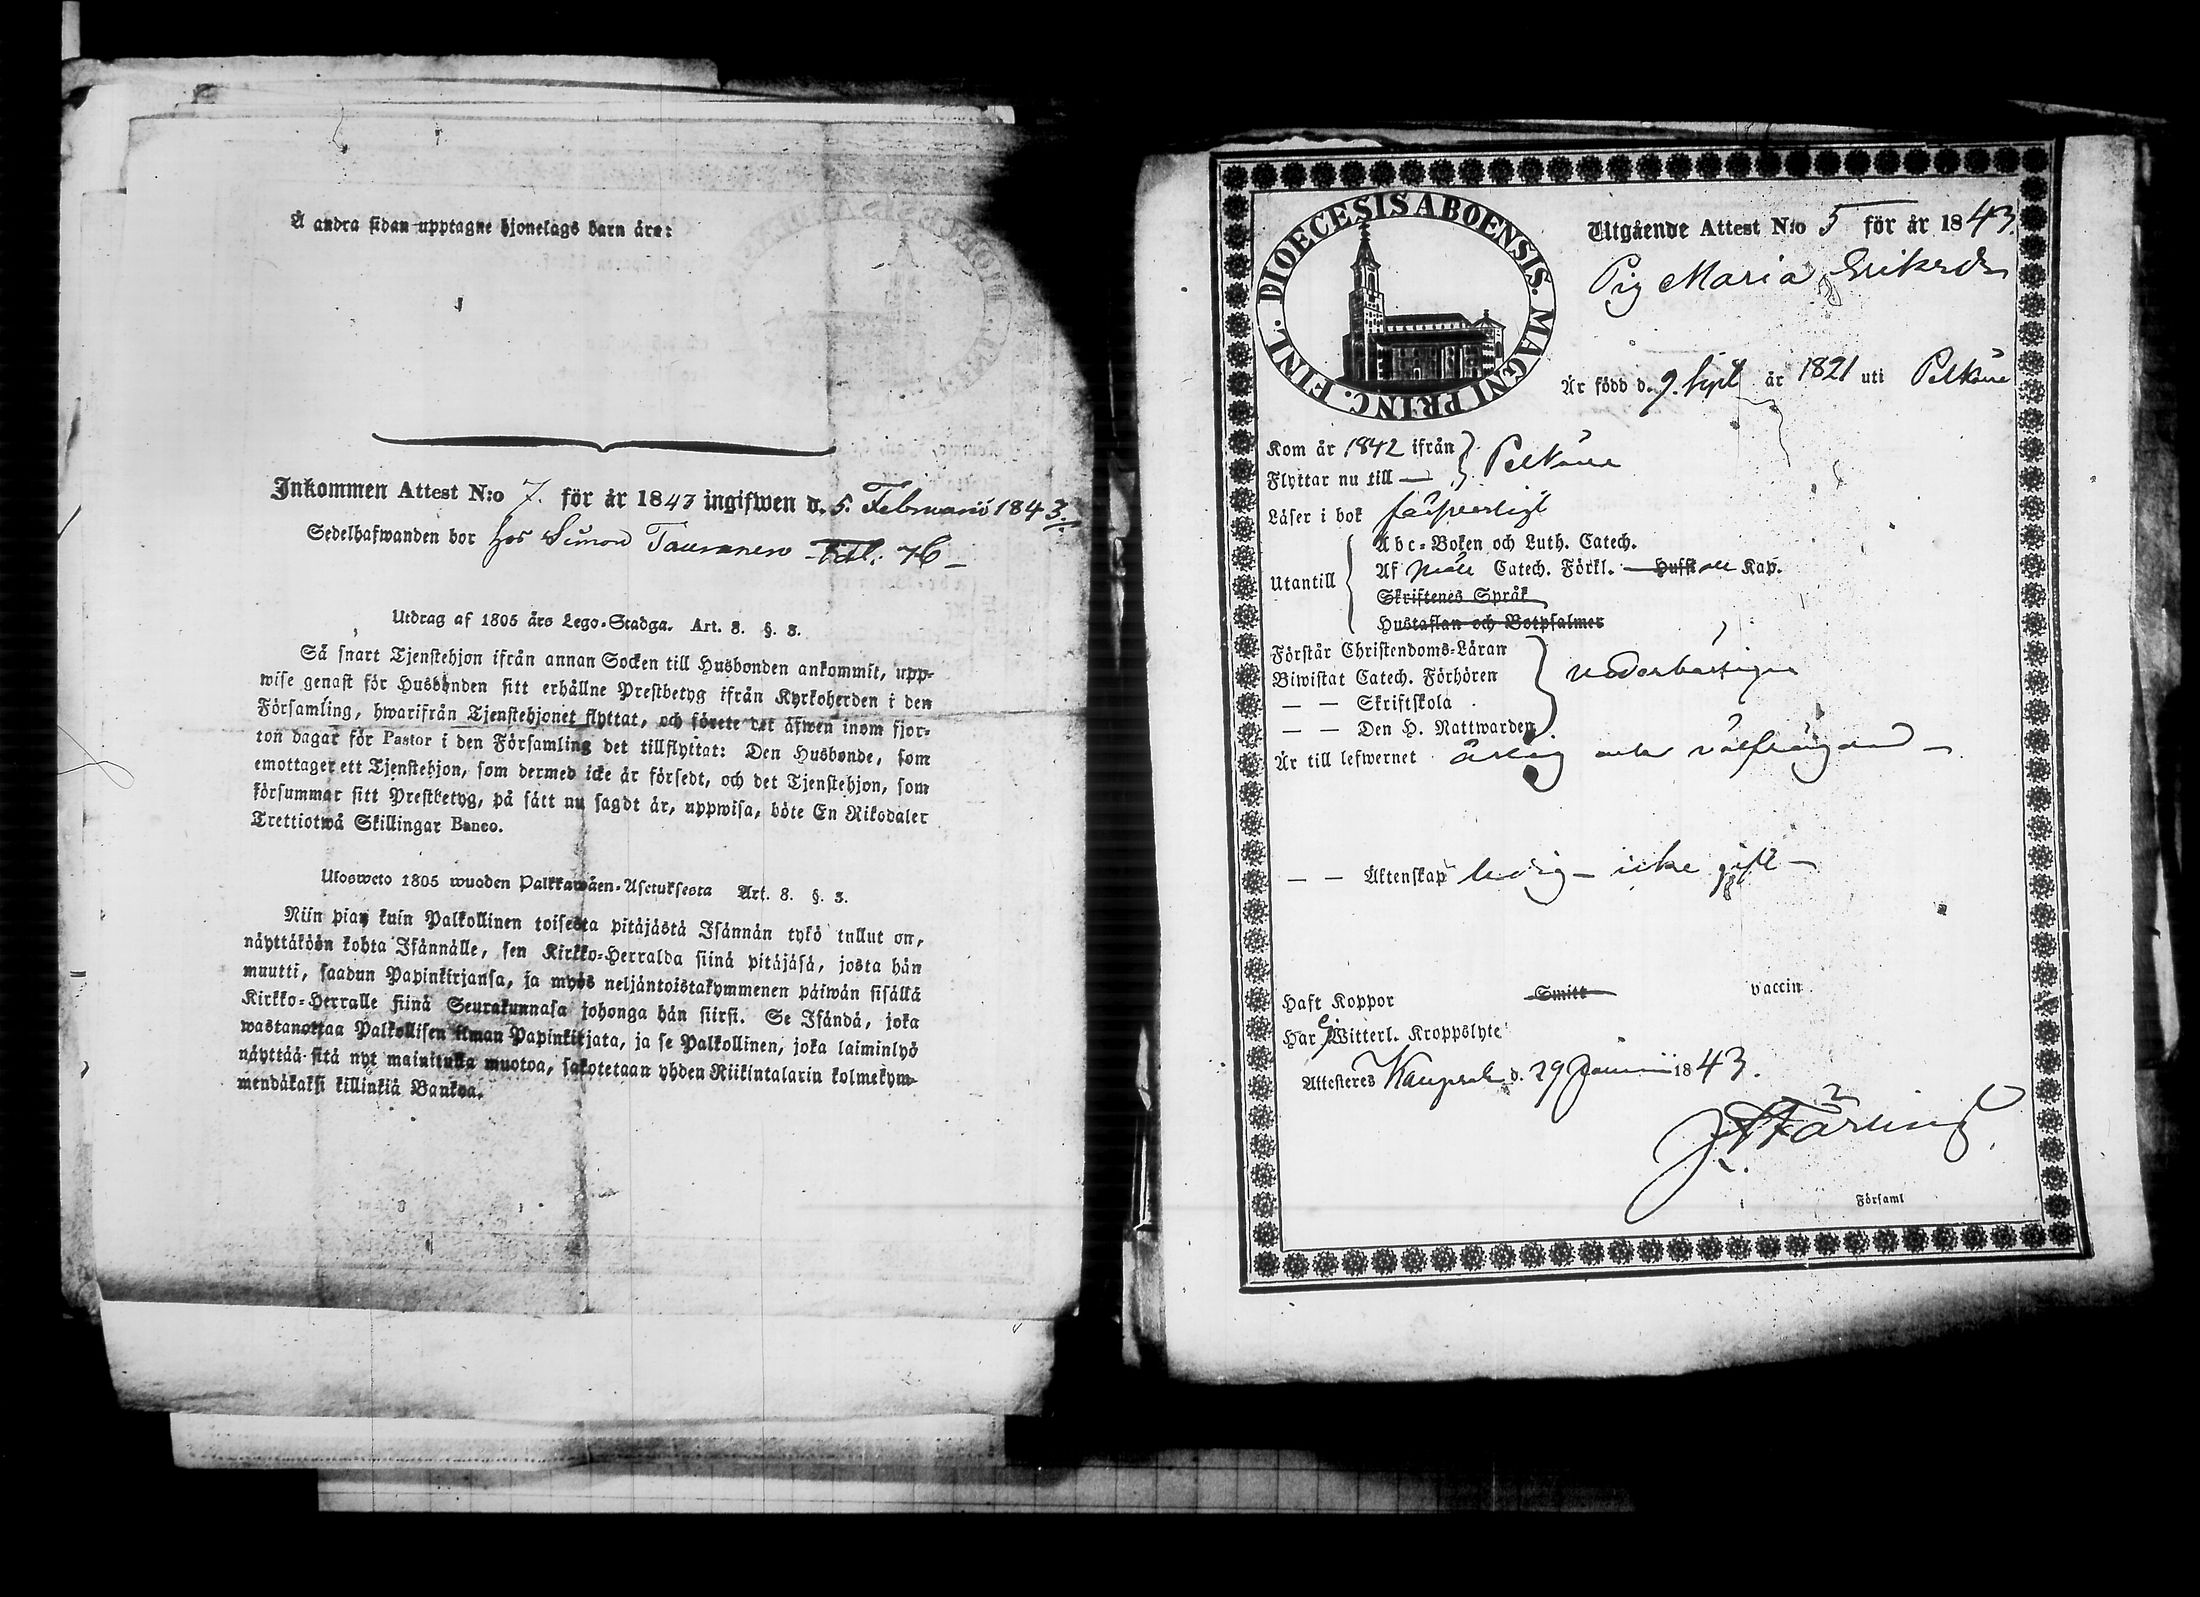 Å andra sidan upptagne hjonelags barn äro:
Inkommen Attest N:o 7. för år 1843 ingifwen d. 5. Februarii 1843.
Sedelhafwanden bor hos Simon
Utdrag af 1805 års Lego-Stadga. Art. 8. §. 3.
Så snart Tjenstehjon ifrån annan Socken till Husbonden ankommit, upp-
wise genast för Husbonden sitt erhållne Prestbetyg ifrån Kyrkoherden i den
Församling, hwarifrån Tjenstehjonet flyttat, och förete det äfwen inom fjor-
ton dagar för Pastor i den Församling det tillflyttat: Den Husbonde, som
emottager ett Tjenstehjon, som dermed icke är försedt, och det Tjenstehjon, som
försummar sitt Prestbetyg, på sätt nu sagdt är, uppwisa, böte En Riksdaler
Trettiotwå Skillingar Banco.
Ulosweto 1805 wuoden Palkkawäen-Asetuksesta Art. 8. §. 3.
Niin pian kuin Palkollinen toisesta pitäjästä Isännän tykö tullut on,
näyttäköön kohta Isännälle, sen Kirkko-Herralda siinä pitäjäsä, josta hän
muutti, saadun Papinkirjansa, ja myös neljäntoistakymmenen päiwän sisällä
Kirkko-Herralle siinä Seurakunnasa johonga hän siirsi. Se Isändä, joka
wastanottaa Palkollisen ilman Papinkirjata, ja se Palkollinen, joka laiminlyö
näyttää sitä nyt mainitulla muotoa, sakotetaan yhden Riikintalarin kolmekym-
mendäkaksi killinkiä Bankoa.
DIOECESIS ABOENSIS. MAGNI PRINC. FINL.
Utgående Attest N:o 5 för år 1843.
Pig Maria Eriksdr
Är född d. 9. Sept år 1821 uti Pelkäne
Kom år 1842 ifrån
Flyttar nu till — Pelkäne
Läser i bok försvarligt
Abc-Boken och Luth. Catech.
Utantill Af Catech. Förkl. Hust Kap.
Skriftenes Språk
Hustaflan och Botpsalmer
Förstår Christendoms-Läran
Biwistat Catech. Förhören
— — Skriftskola
— — Den H. Nattwarden
Är till lefwernet ärlig och välfrägdad —
— — Äktenskap ledig — icke gift —
Haft Koppor Smitt vaccin
Har ej Witterl. Kroppslyte
Attesteres d. 29 1843.
Färling
Församl